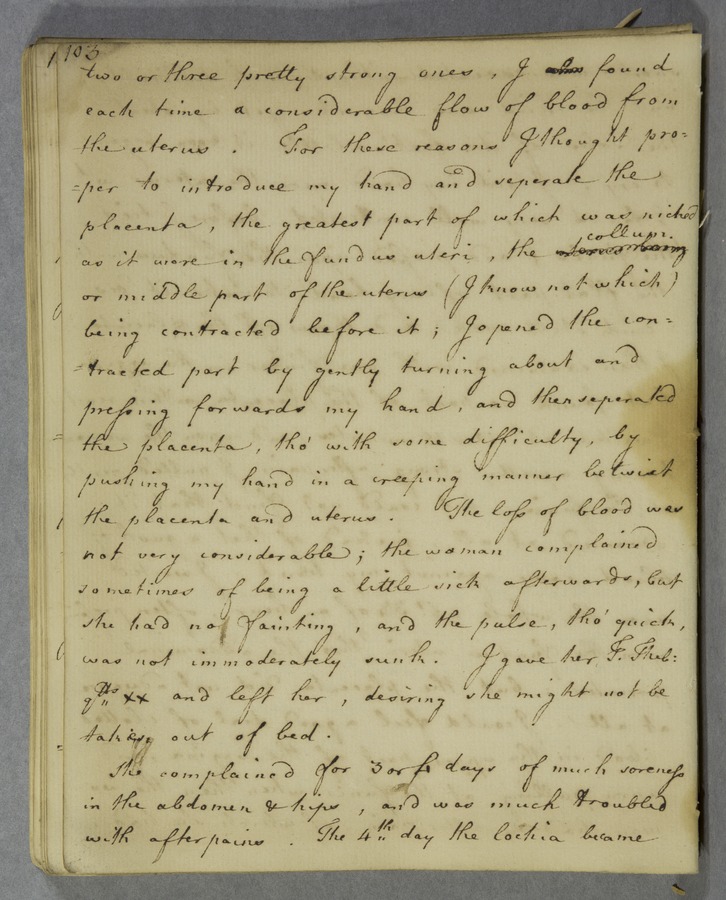 103
two or three pretty strong ones, I also found
each time a considerable flow of blood from
the uterus. For these reasons I thought pro=
=per to introduce my hand and seperate the
placenta, the greatest part of which was niched
collum.
as it were in the fundus uteri, the
or middle part of the uterus (I know not which)
being contracted before it; I opened the con=
=tracted part by gently turning about and
pressing forwards my hand, and then seperated
the placenta, tho' with some difficulty, by
pushing my hand in a creeping manner betwixt
the placenta and uterus. The loss of blood was
not very considerable; the woman complained
sometimes of being a little sick afterwards, but
she had no fainting, and the pulse, tho' quick,
was not immoderately sunk. I gave her T. Theb:
gtts xx and left her, desiring she might not be
taken out of bed.
She complained for 3 or 4 days of much soreness
in the abdomen & hips, and was much troubled
with afterpains. The 4th day the lochia became